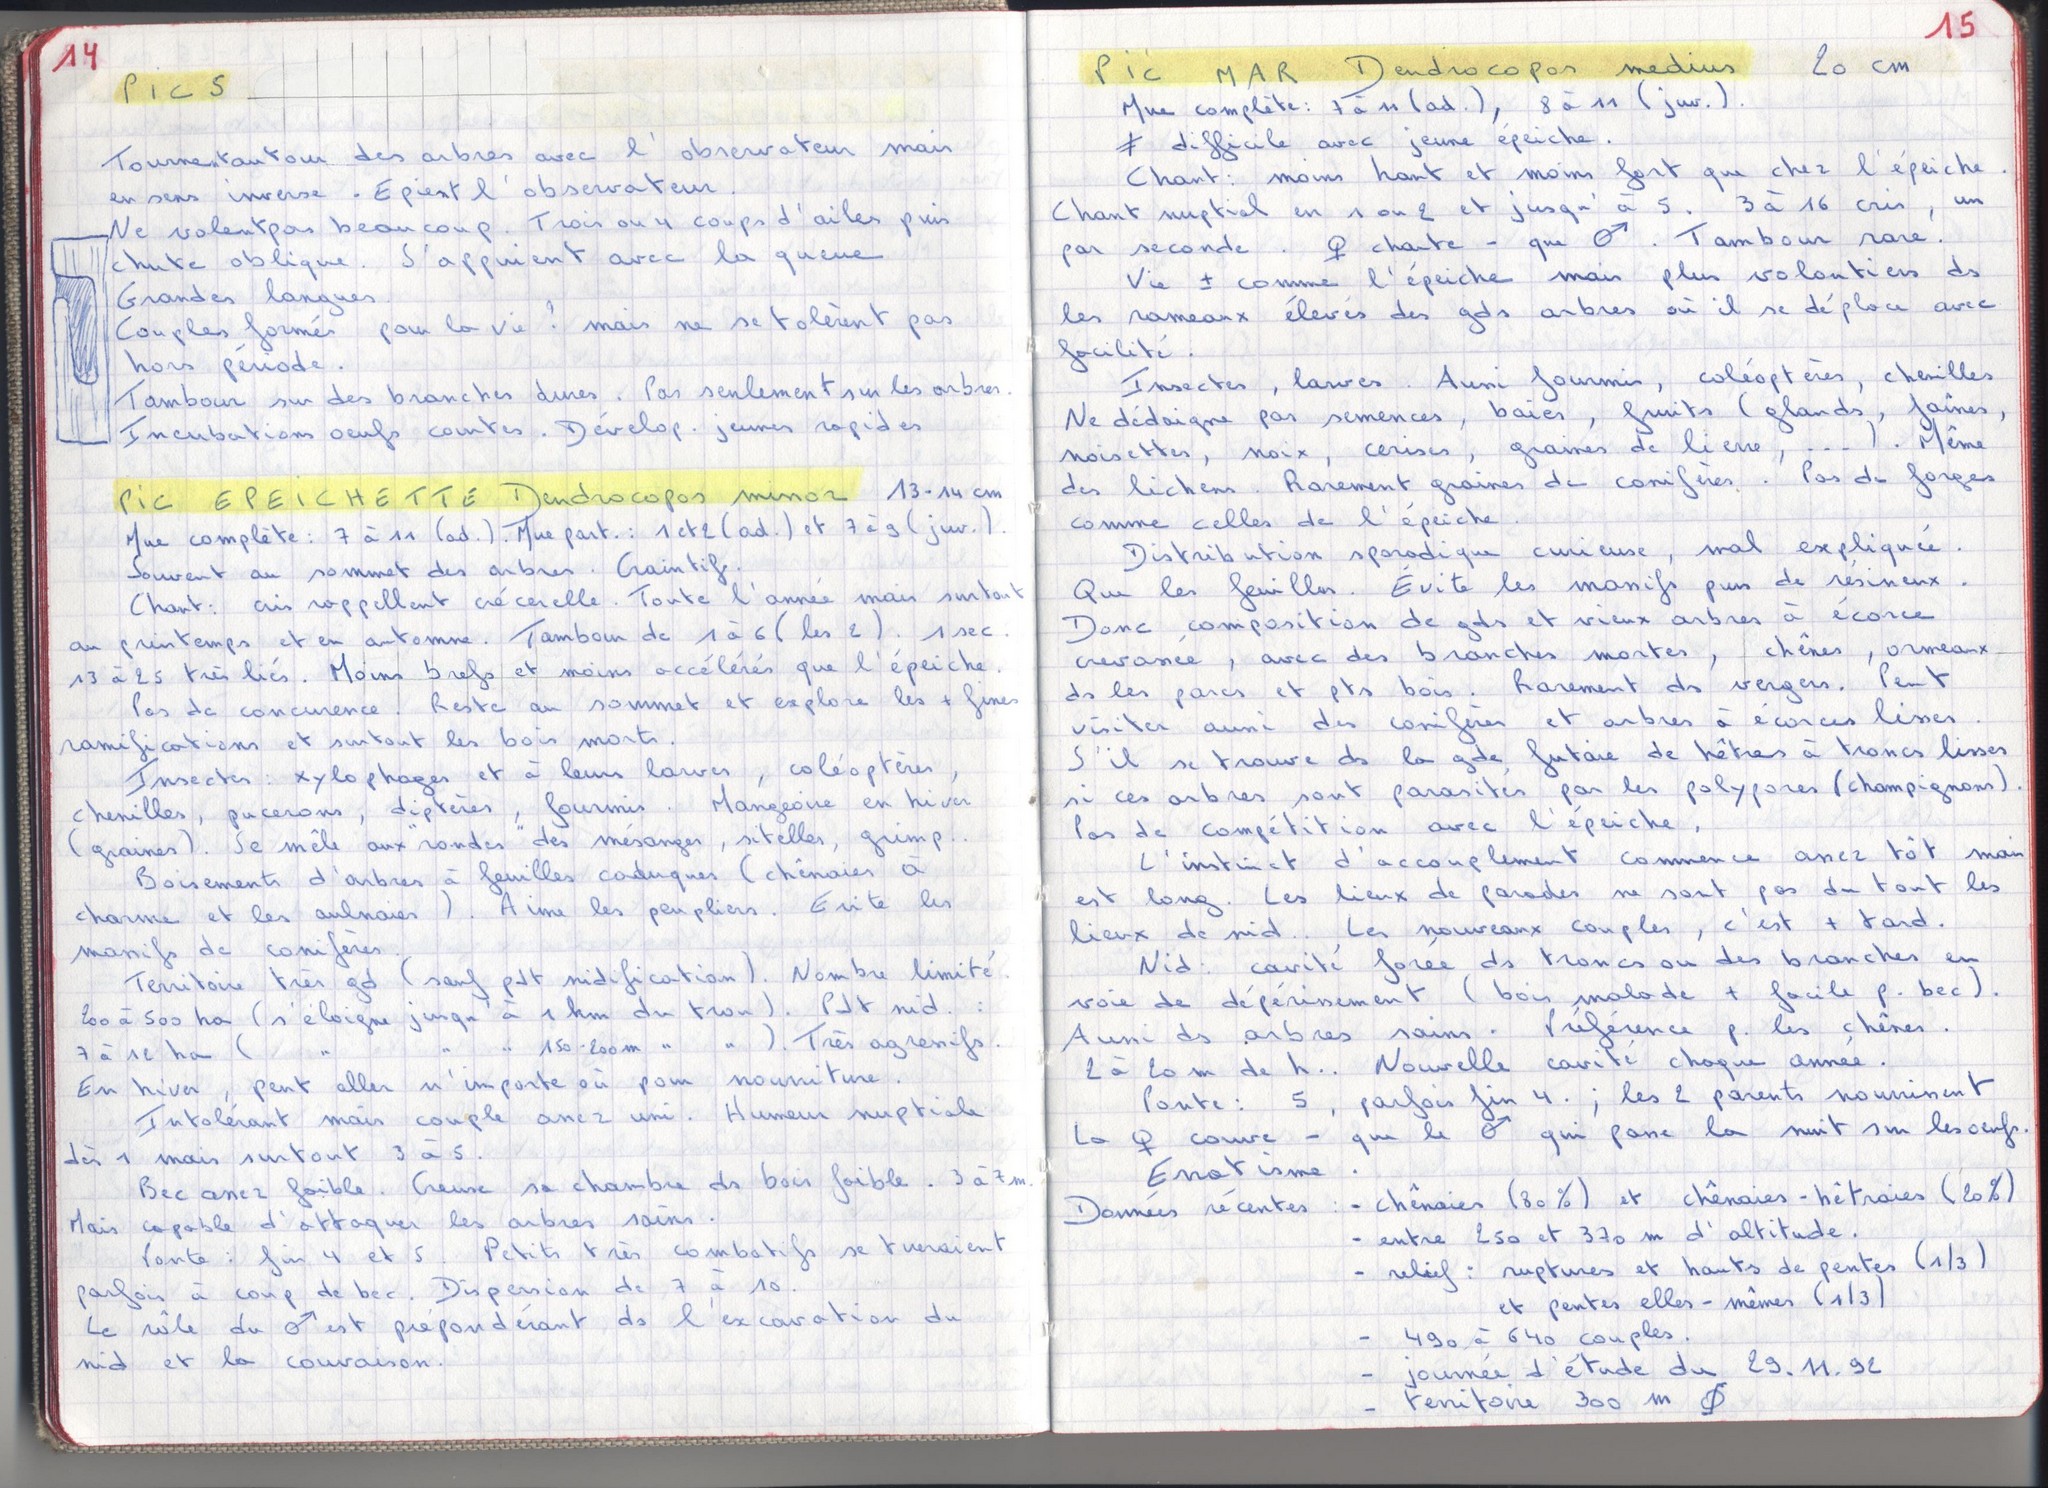 14
PICS
Tournent autour des arbres avec l'observateur mais
en sens inverse. Epient l'observateur.
Ne volent pas beaucoup. Trois ou 4 coups d'ailes puis
chute oblique. S'appuient avec la queue
Grandes langues.
Couples formés pour la vie ? mais ne se tolèrent pas
hors période.
Tambour sur des branches dures. Pas seulement sur les arbres.
Incubations oeufs courtes. Dévelop. jeunes rapides
PIC EPEICHETTE Dendrocopos minor 13-14 cm
Mue complète : 7 à 11 (ad.). Mue part. : 1 et 2 (ad.) et 7 à 9 (juv.).
Souvent au sommet des arbres. Craintifs.
Chant : cris rappellent crécerelle. Toute l'année mais surtout
au printemps et en automne. Tambour de 1 à 6 (les 2). 1 sec.
13 à 25 très liés. Moins brefs et moins accélérés que l'épeiche.
Pas de concurence. Reste au sommet et explore les + fines
ramifications et surtout les bois morts.
Insectes : xylophages et à leurs larves, coléoptères,
chenilles, pucerons, diptères, fourmis. Mangeoire en hiver
(graines). Se mêle aux "rondes" des mésanges, sitelles, grimp..
Boisements d'arbres à feuilles caduques (chênaies à
charme et les aulnaies). Aime les peupliers. Evite les
massifs de conifères.
Territoire très gd (sauf pdt nidification). Nombre limité.
200 à 500 ha (s'éloigne jusqu'à 1 km du trou). Pdt nid. :
7 à 12 ha ( " " " 150-200m " " ). Très agressifs.
En hiver, peut aller n'importe où pour nourriture.
Intolérant mais couple assez uni. Humeur nuptiale
dès 1 mais surtout 3 à 5.
Bec assez faible. Creuse sa chambre ds bois faible. 3 à 7 m.
Mais capable d'attaquer les arbres sains.
Ponte : fin 4 et 5. Petits très combatifs se tueraient
parfois à coup de bec. Dispersion de 7 à 10.
Le rôle du ♂ est prépondérant ds l'excavation du
nid et la couvaison.
15
PIC MAR Dendrocopos medius 20 cm
Mue complète : 7 à 11 (ad.), 8 à 11 (juv.).
≠ difficile avec jeune épeiche.
Chant : moins haut et moins fort que chez l'épeiche.
Chant nuptial en 1 ou 2 et jusqu'à 5. 3 à 16 cris, un
par seconde. ♀ chante - que ♂. Tambour rare.
Vie ± comme l'épeiche mais plus volontiers ds
les rameaux élevés des gds arbres où il se déplace avec
facilité.
Insectes, larves. Aussi fourmis, coléoptères, chenilles
Ne dédaigne pas semences, baies, fruits (glands, faînes,
noisettes, noix, cerises, graines de lierre, ...). Même
des lichens. Rarement graines de conifères. Pas de forges
comme celles de l'épeiche.
Distribution sporadique curieuse, mal expliquée.
Que les feuillus. Évite les massifs purs de résineux.
Donc composition de gds et vieux arbres à écorce
crevassée, avec des branches mortes, chênes, ormeaux
ds les parcs et pts bois. Rarement ds vergers. Peut
visiter aussi des conifères et arbres à écorces lisses.
S'il se trouve ds la gde futaie de hêtres à troncs lisses
si ces arbres sont parasités par les polypores (champignons).
Pas de compétition avec l'épeiche.
L'instinct d'accouplement commence assez tôt mais
est long. Les lieux de parades ne sont pas du tout les
lieux de nid.. Les nouveaux couples, c'est + tard.
Nid : cavité forée ds troncs ou des branches en
voie de dépérissement (bois malade + facile p. bec).
Aussi ds arbres sains. Préférence p. les chênes.
2 à 20 m de h.. Nouvelle cavité chaque année.
Ponte : 5, parfois fin 4. ; les 2 parents nourrissent
La ♀ couve - que le ♂ qui passe la nuit sur les oeufs.
Erratisme.
Données récentes : - chênaies (80%) et chênaies-hêtraies (20%)
- entre 250 et 370 m d'altitude.
- relief : ruptures et hauts de pentes (1/3)
et pentes elles-mêmes (1/3)
- 490 à 640 couples.
- journée d'étude du 29.11.92
- territoire 300 m ∅